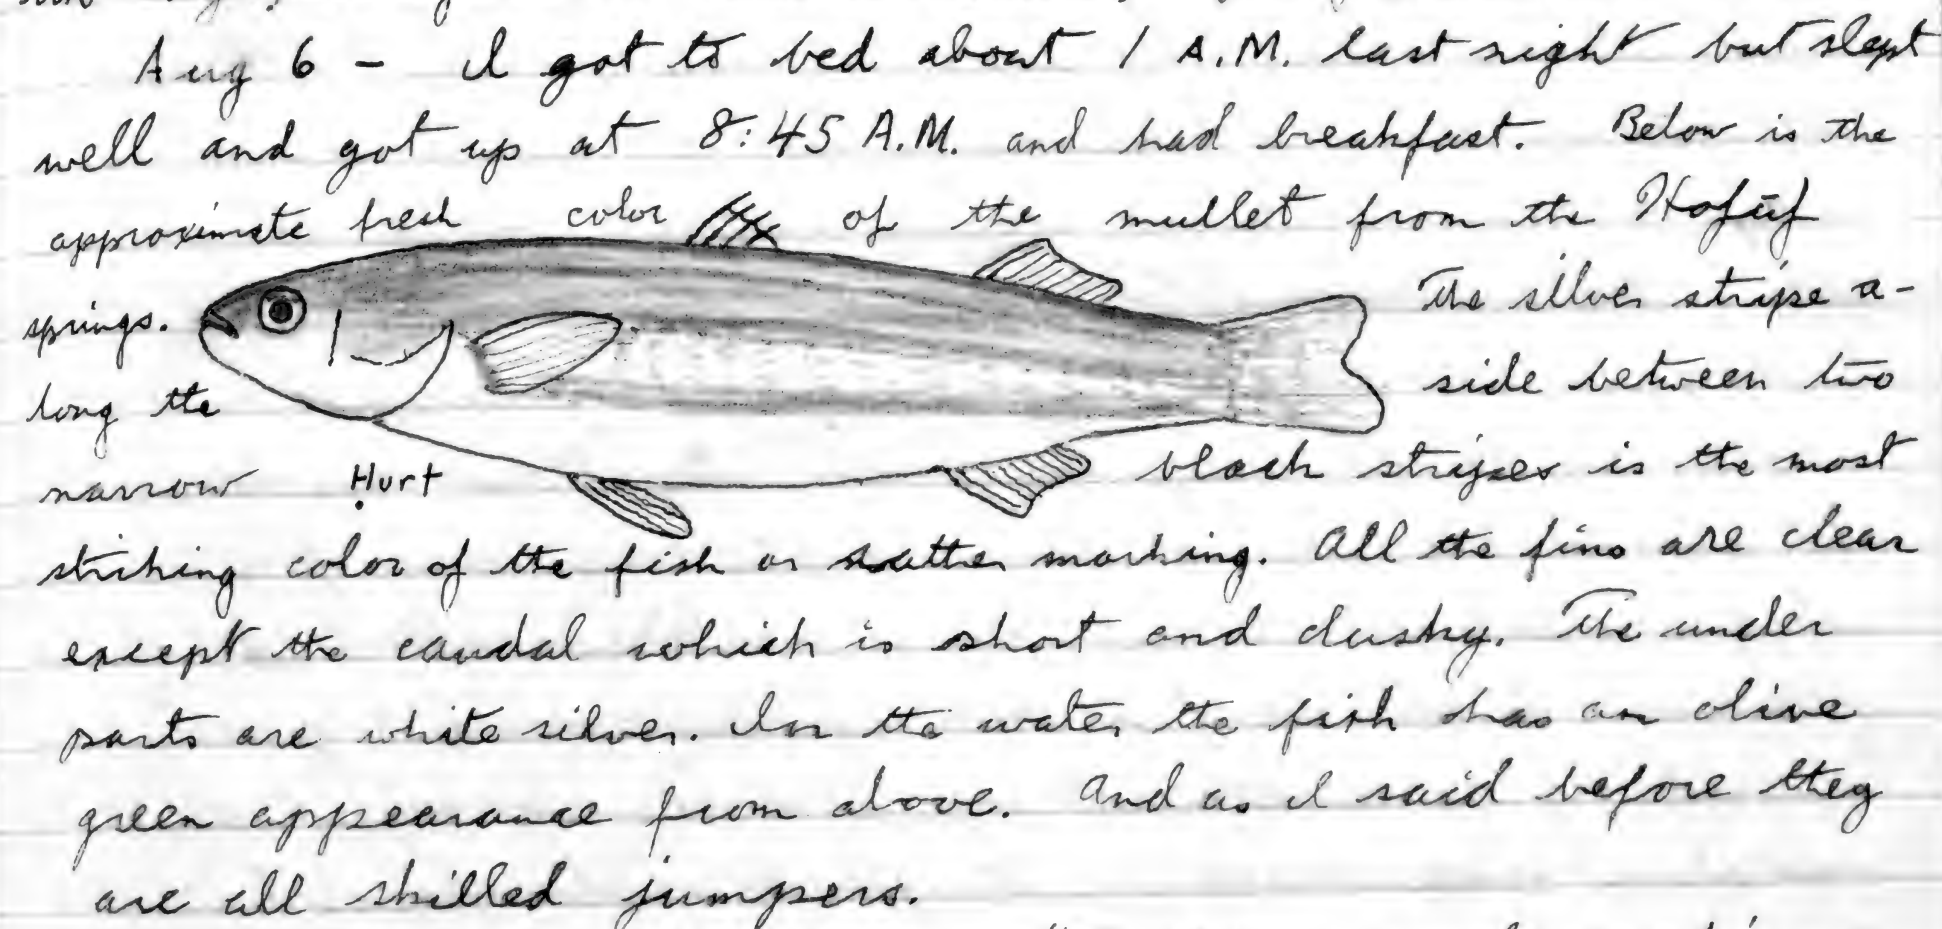 Aug 6 - I got to bed about 1 A.M. last night but slept
well and got up at 8:45 A.M. and had breakfast. Below is the
approximate fresh color of the mullet from the Hofūf
springs. The silver stripe a-
long the side between two
narrow Hurt black stripes is the most
striking color of the fish or rather marking. All the fins are clear
except the caudal which is short and dusky. The under
parts are white silver. In the water the fish has an olive
green appearance from above. And as I said before they
are all skilled jumpers.